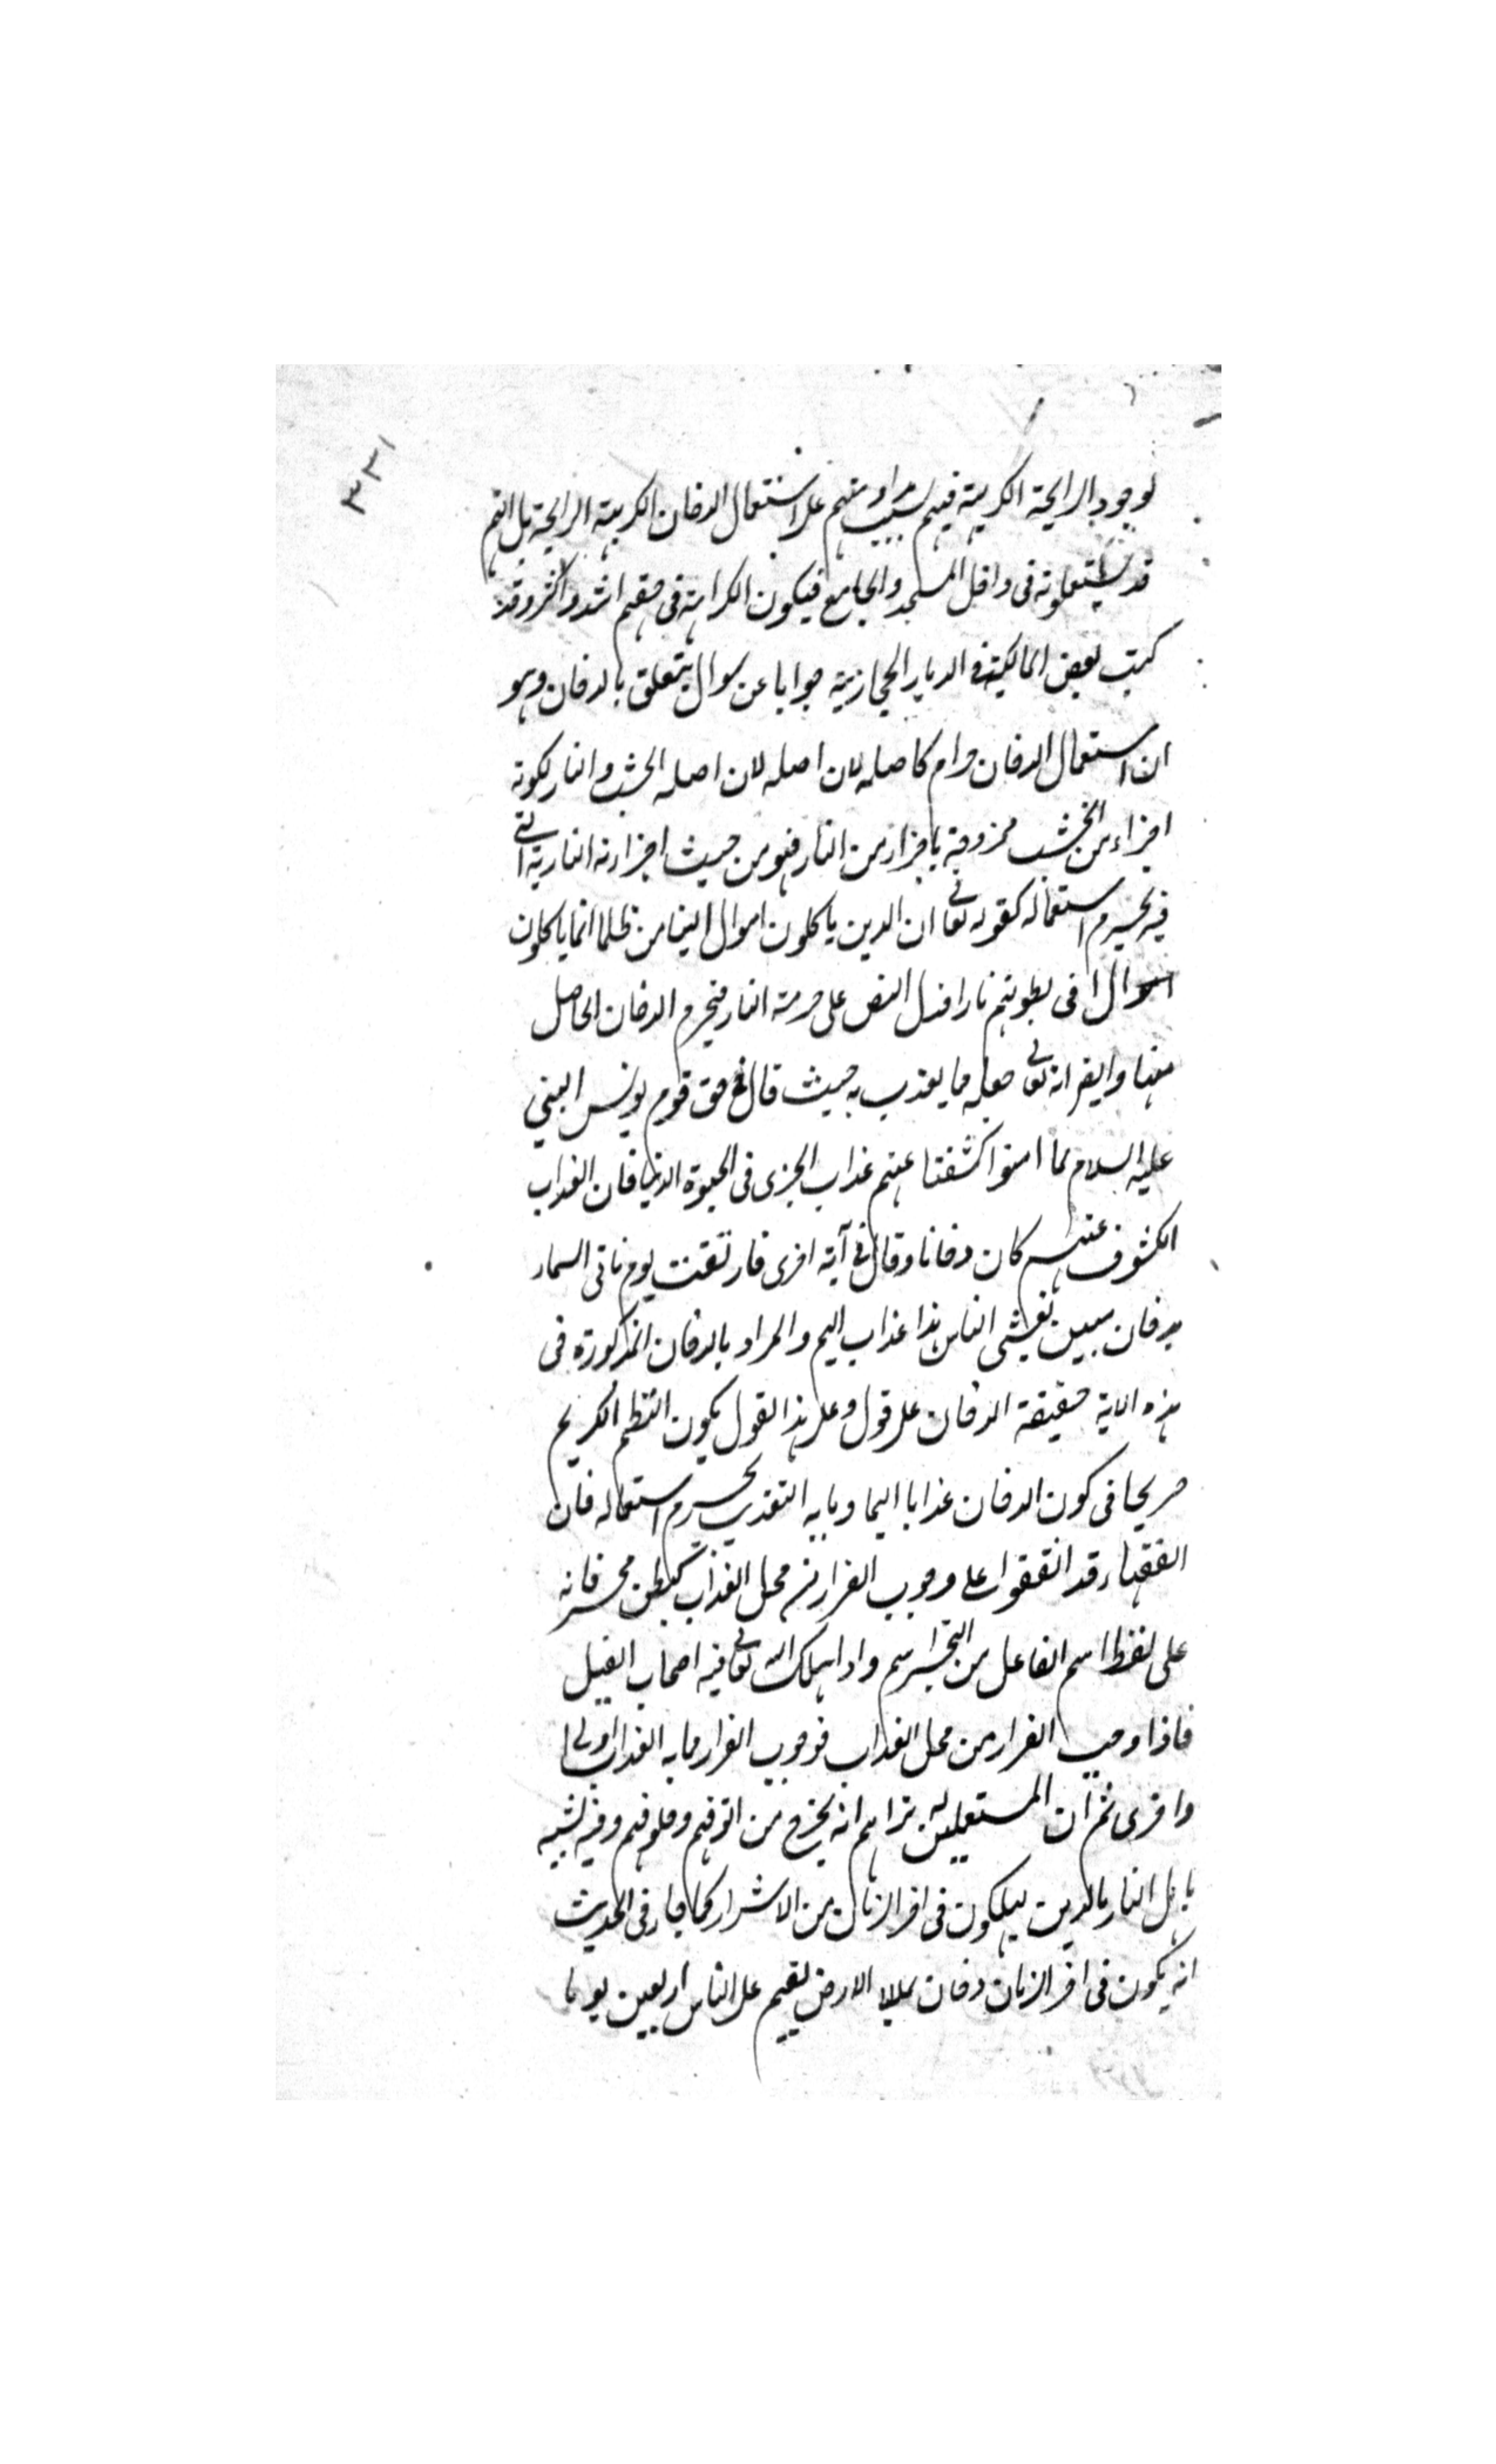 ٣٣١
لوجود الرايحة الكريهة فيهم بسبب مداومتهم على استعمال الدخان الكريهة الرايحة بل انهم
قد يستعملونه فى داخل المسجد والجامع فيكون الكراهة فى حقهم اشد واكثر وقد
كتب بعض المالكية فى الديار الحجازية جوابا عن سوال يتعلق بالدخان وهو
ان استعمال الدخان حرام كاصله لان اصله لان اصله الخشب والنار لكونه
اجزاء من الخشب ممزوجة باجزاء من النار فهو من حيث اجزائه النارية التى
فيه يحرم استعماله كقوله تعالى ان الذين ياكلون اموال اليتامى ظلما انما ياكلون
فى بطونهم نارا فدل النص على حرمة النار فيحرم الدخان الحاصل
منها وايضا انه تعالى جعله مما يعذب به حيث قال فى حق قوم يونس النبي
عليه السلام لما امنوا كشفنا عنهم عذاب الخزى فى الحيوة الدنيا فان العذاب
المكشوف عنهم كان دخانا وقال فى آية اخرى فارتقب يوم تاتى السماء
بدخان مبين يغشى الناس هذا عذاب اليم والمراد بالدخان المذكورة فى
هذه الاية حقيقة الدخان على قول وعلى هذا القول يكون النظم الكريم
صريحا فى كون الدخان عذابا اليما وما به التعذيب يحرم استعماله فان
الفقهاء قد اتفقوا على وجوب الفرار من محل العذاب كبطن محسر فانه
على لفظ اسم الفاعل من التحسير اسم واد اهلك الله تعالى فيه اصحاب الفيل
فاذا وجب الفرار من محل العذاب فوجوب الفرار مما به العذاب اولى
واحرى ثم ان المستعملين له تراهم انه يخرج من انوفهم وحلوقهم وفيه تشبيه
باهل النار بالذين يهلكون فى اخر الزمان من الاشرار كما جاء فى الحديث
انه يكون فى اخر الزمان دخان يملاء الارض يقيم على الناس اربعين يوما